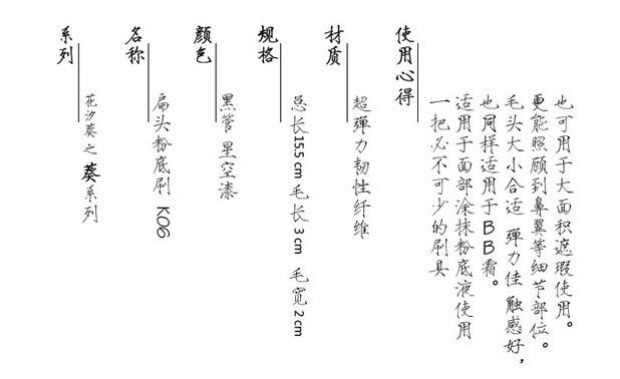 系列
花汐葵之 葵系列
名称
扁头粉底刷 K06
颜色
黑管 星空漆
规格
总长15.5cm 毛长 3cm 毛宽 2cm
材质
超弹力韧性纤维
使用心得
一把必不可少的刷具
适用于面部涂抹粉底液使用
也同样适用于BB霜。
毛头大小合适 弹力佳 触感好,
更能照顾到鼻翼等细节部位。
也可用于大面积遮瑕使用。